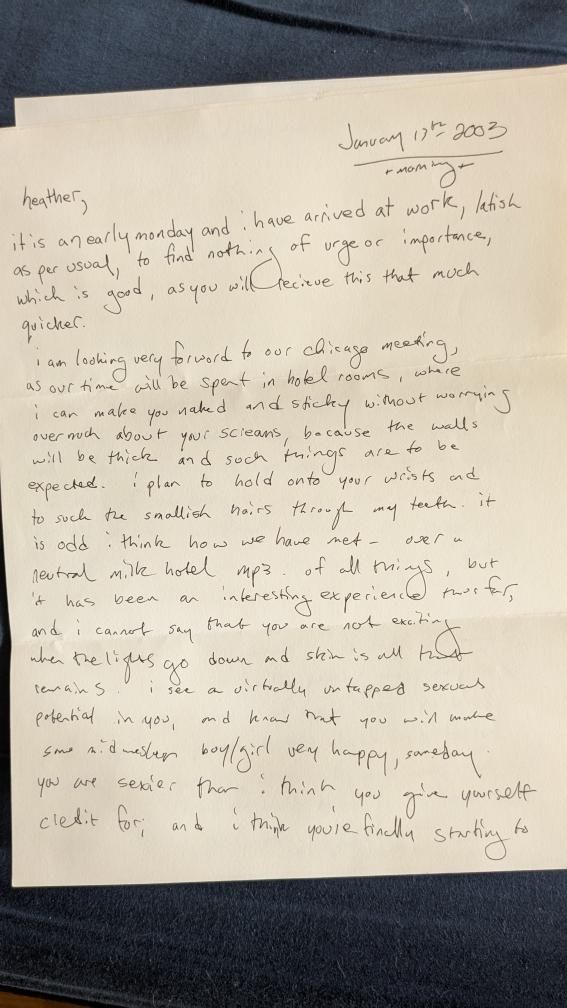 January 13th 2003
+ morning +
heather,
it is an early monday and i have arrived at work, latish
as per usual, to find nothing of urge or importance,
which is good, as you will recieve this that much
quicker.
i am looking very forward to our chicago meeting,
as our time will be spent in hotel rooms, where
i can make you naked and sticky without worrying
overmuch about your screams, because the walls
will be thick and such things are to be
expected. i plan to hold onto your wrists and
to suck the smallish hairs through my teeth. it
is odd i think how we have met - over a
neutral milk hotel mp3. of all things, but
it has been an interesting experience thus far,
and i cannot say that you are not exciting
when the lights go down and skin is all that
remains. i see a virtually untapped sexual
potential in you, and know that you will make
some midwestern boy/girl very happy, someday.
you are sexier than i think you give yourself
credit for; and i think you're finally starting to